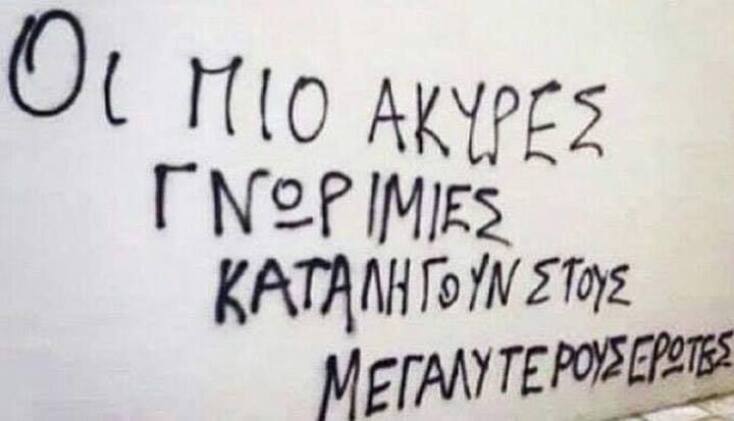 Οι ΠΙΟ ΑΚΥΡΕΣ
ΓΝΩΡΙΜΙΕΣ
ΚΑΤΑΛΗΓΟΥΝ ΣΤΟΥΣ
ΜΕΓΑΛΥΤΕΡΟΥΣ ΕΡΩΤΕΣ